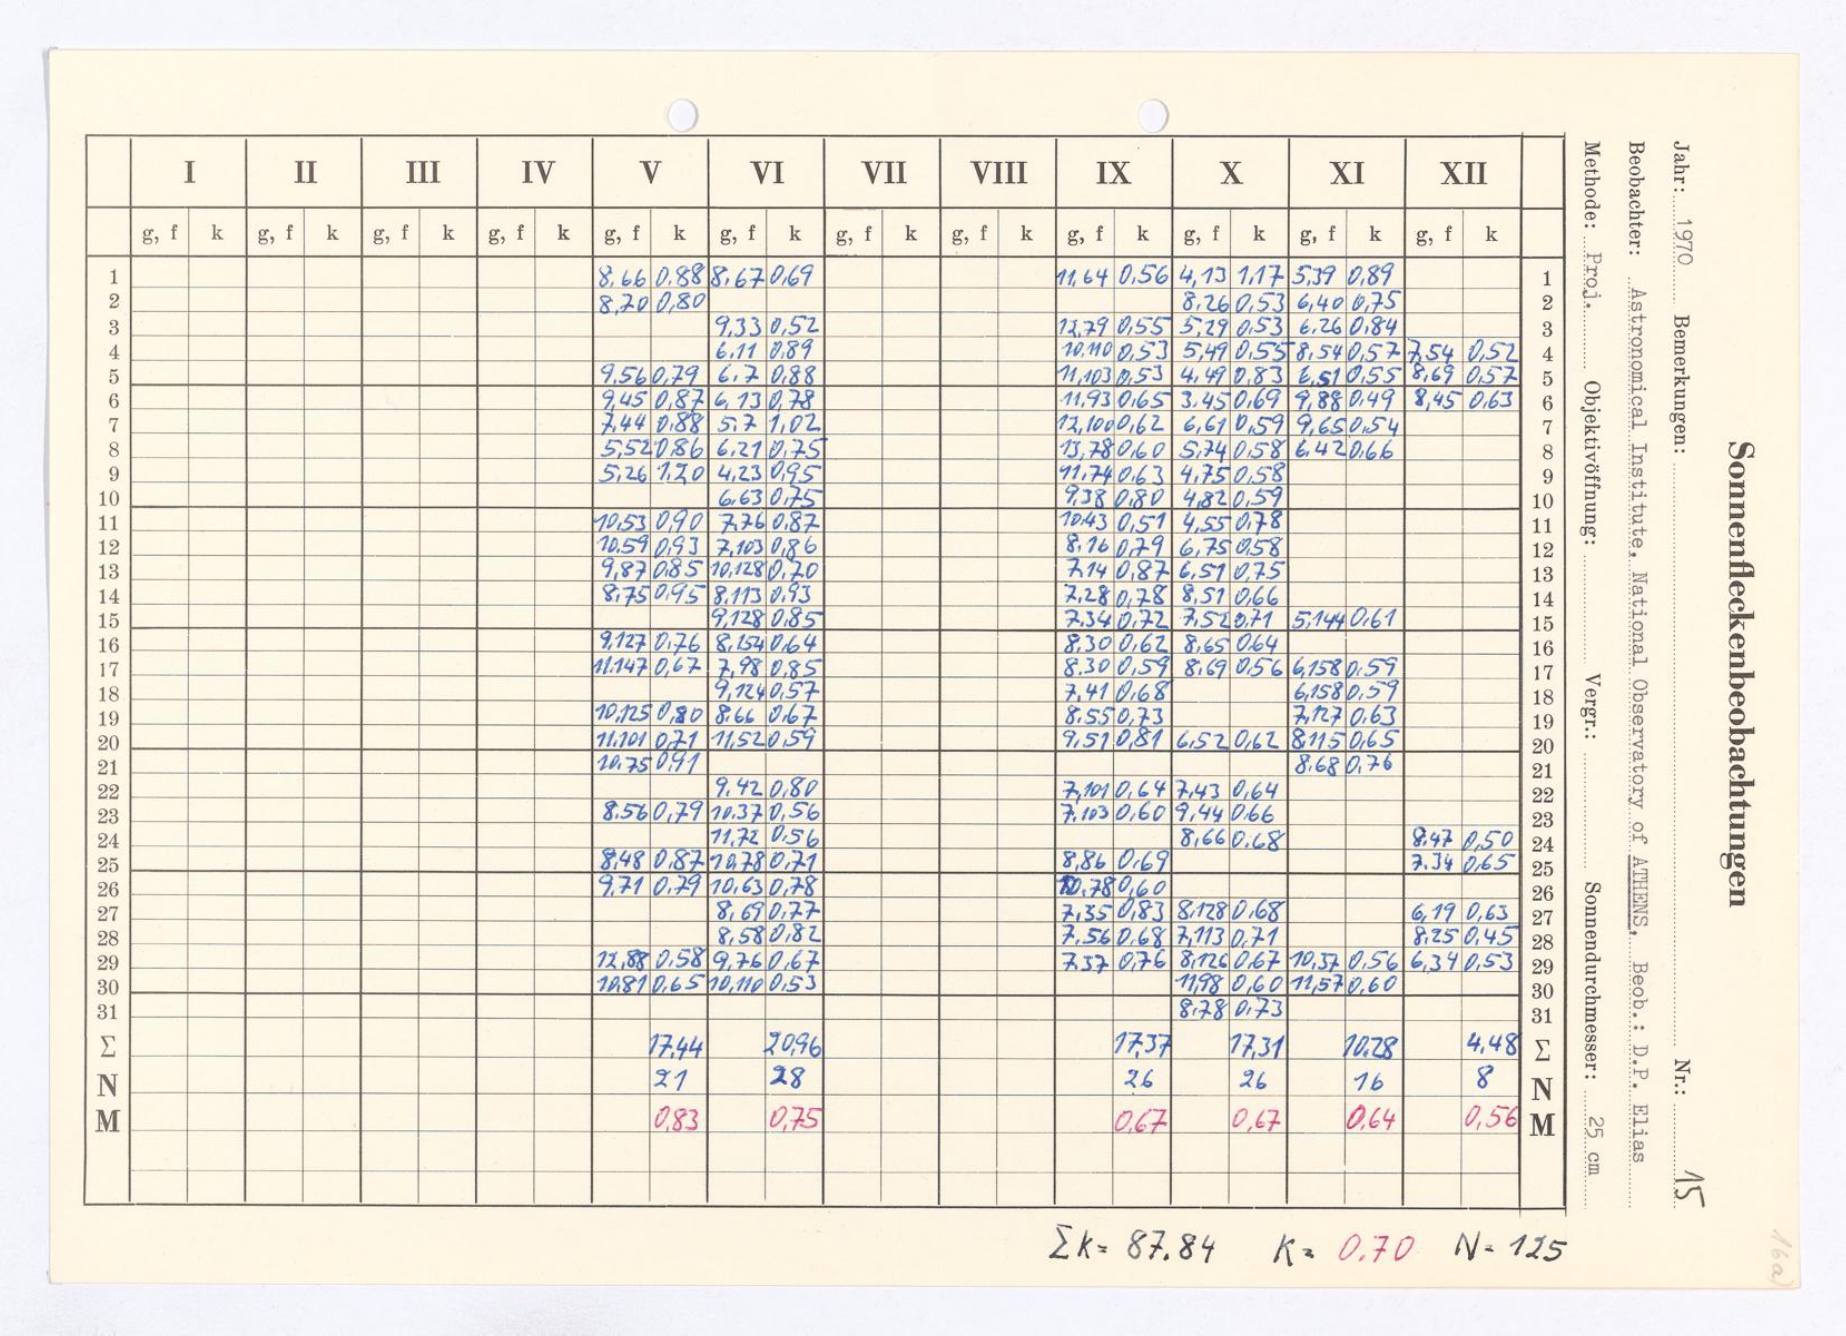 Sonnenfleckenbeobachtungen
Jahr: 1970 Bemerkungen: Nr.: 15
Beobachter: Astronomical Institute, National Observatory of ATHENS, Beob.: D.P. Elias
Methode: Proj. Objektivöffnung: Vergr.: Sonnendurchmesser: 25 cm
I II III IV V VI VII VIII IX X XI XII
g, f k g, f k g, f k g, f k g, f k g, f k g, f k g, f k g, f k g, f k g, f k g, f k
1 8,66 0,88 8,67 0,69 11,64 0,56 4,13 1,17 5,39 0,89 1
2 8,70 0,80 8,26 0,53 6,40 0,75 2
3 9,33 0,52 12,79 0,55 5,29 0,53 6,26 0,84 3
4 6,11 0,89 10,110 0,53 5,49 0,55 8,54 0,57 7,54 0,52 4
5 9,56 0,79 6,7 0,88 11,103 0,53 4,49 0,83 6,51 0,55 8,69 0,57 5
6 9,45 0,87 6,13 0,78 11,93 0,65 3,45 0,69 9,88 0,49 8,45 0,63 6
7 7,44 0,88 5,7 1,02 12,100 0,62 6,61 0,59 9,65 0,54 7
8 5,52 0,86 6,21 0,75 13,78 0,60 5,74 0,58 6,42 0,66 8
9 5,26 1,20 4,23 0,95 11,74 0,63 4,75 0,58 9
10 6,63 0,75 9,38 0,80 4,82 0,59 10
11 10,53 0,90 7,76 0,87 10,43 0,51 4,55 0,78 11
12 10,59 0,93 7,103 0,86 8,16 0,79 6,75 0,58 12
13 9,87 0,85 10,128 0,70 7,14 0,87 6,51 0,75 13
14 8,75 0,95 8,113 0,93 7,28 0,78 8,51 0,66 14
15 9,128 0,85 7,34 0,72 7,52 0,71 5,144 0,61 15
16 9,127 0,76 8,154 0,64 8,30 0,62 8,65 0,64 16
17 11,147 0,67 7,98 0,85 8,30 0,59 8,69 0,56 6,158 0,59 17
18 9,124 0,57 7,41 0,68 6,158 0,59 18
19 10,125 0,80 8,66 0,67 8,55 0,73 7,127 0,63 19
20 11,101 0,71 11,52 0,59 9,51 0,81 6,52 0,62 8,115 0,65 20
21 10,75 0,91 8,68 0,76 21
22 9,42 0,80 7,101 0,64 7,43 0,64 22
23 8,56 0,79 10,37 0,56 7,103 0,60 9,44 0,66 23
24 11,72 0,56 8,66 0,68 8,47 0,50 24
25 8,48 0,87 10,78 0,71 8,86 0,69 7,34 0,65 25
26 9,71 0,79 10,63 0,78 10,78 0,60 26
27 8,69 0,77 7,35 0,83 8,128 0,68 6,19 0,63 27
28 8,58 0,82 7,56 0,68 7,113 0,71 8,25 0,45 28
29 12,88 0,58 9,76 0,67 7,37 0,76 8,126 0,67 10,37 0,56 6,34 0,53 29
30 10,81 0,65 10,110 0,53 11,98 0,60 11,57 0,60 30
31 8,78 0,73 31
Σ 17,44 20,96 17,37 17,31 10,28 4,48 Σ
N 21 28 26 26 16 8 N
M 0,83 0,75 0,67 0,67 0,64 0,56 M
Σk= 87.84 K= 0.70 N= 125
16a)